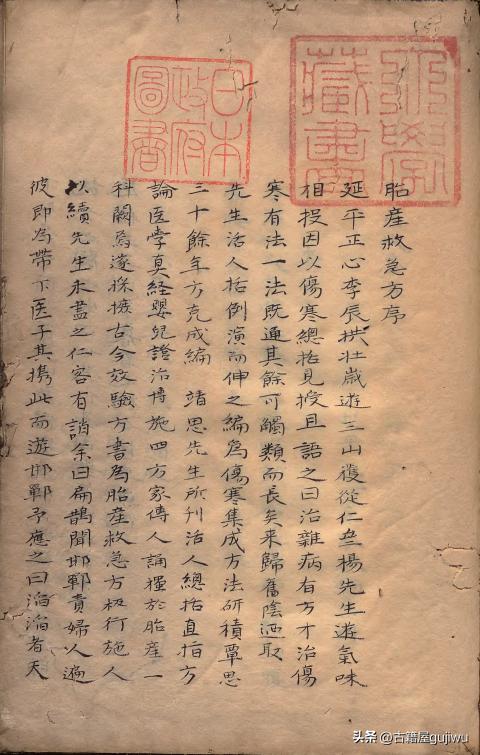 胎產救急方序
延平正心李辰拱壮歳遊三山獲從仁斎楊先生遊氣味
相投因以傷寒總括見授且語之曰治雜病有方才治傷
寒有法一法既通其餘可觸類而長矣来歸舊隂迺取
先生活人括例演而伸之編爲傷寒集成方法研積覃思
三十餘年方克成編 靖思先生所刊活人總括直指方
論医學真経嬰兒證治博施四方家傳人誦獨於胎産一
科闕焉遂採摭古今效驗方書為胎産救急方板行施人
以續先生未盡之仁客有誚余曰扁鵲聞邯鄲貴婦人遍
彼即為帶下医子其携此而遊邯鄲乎應之曰滔滔者天
日本
政府
圖書
头条 @古籍屋gujiwu